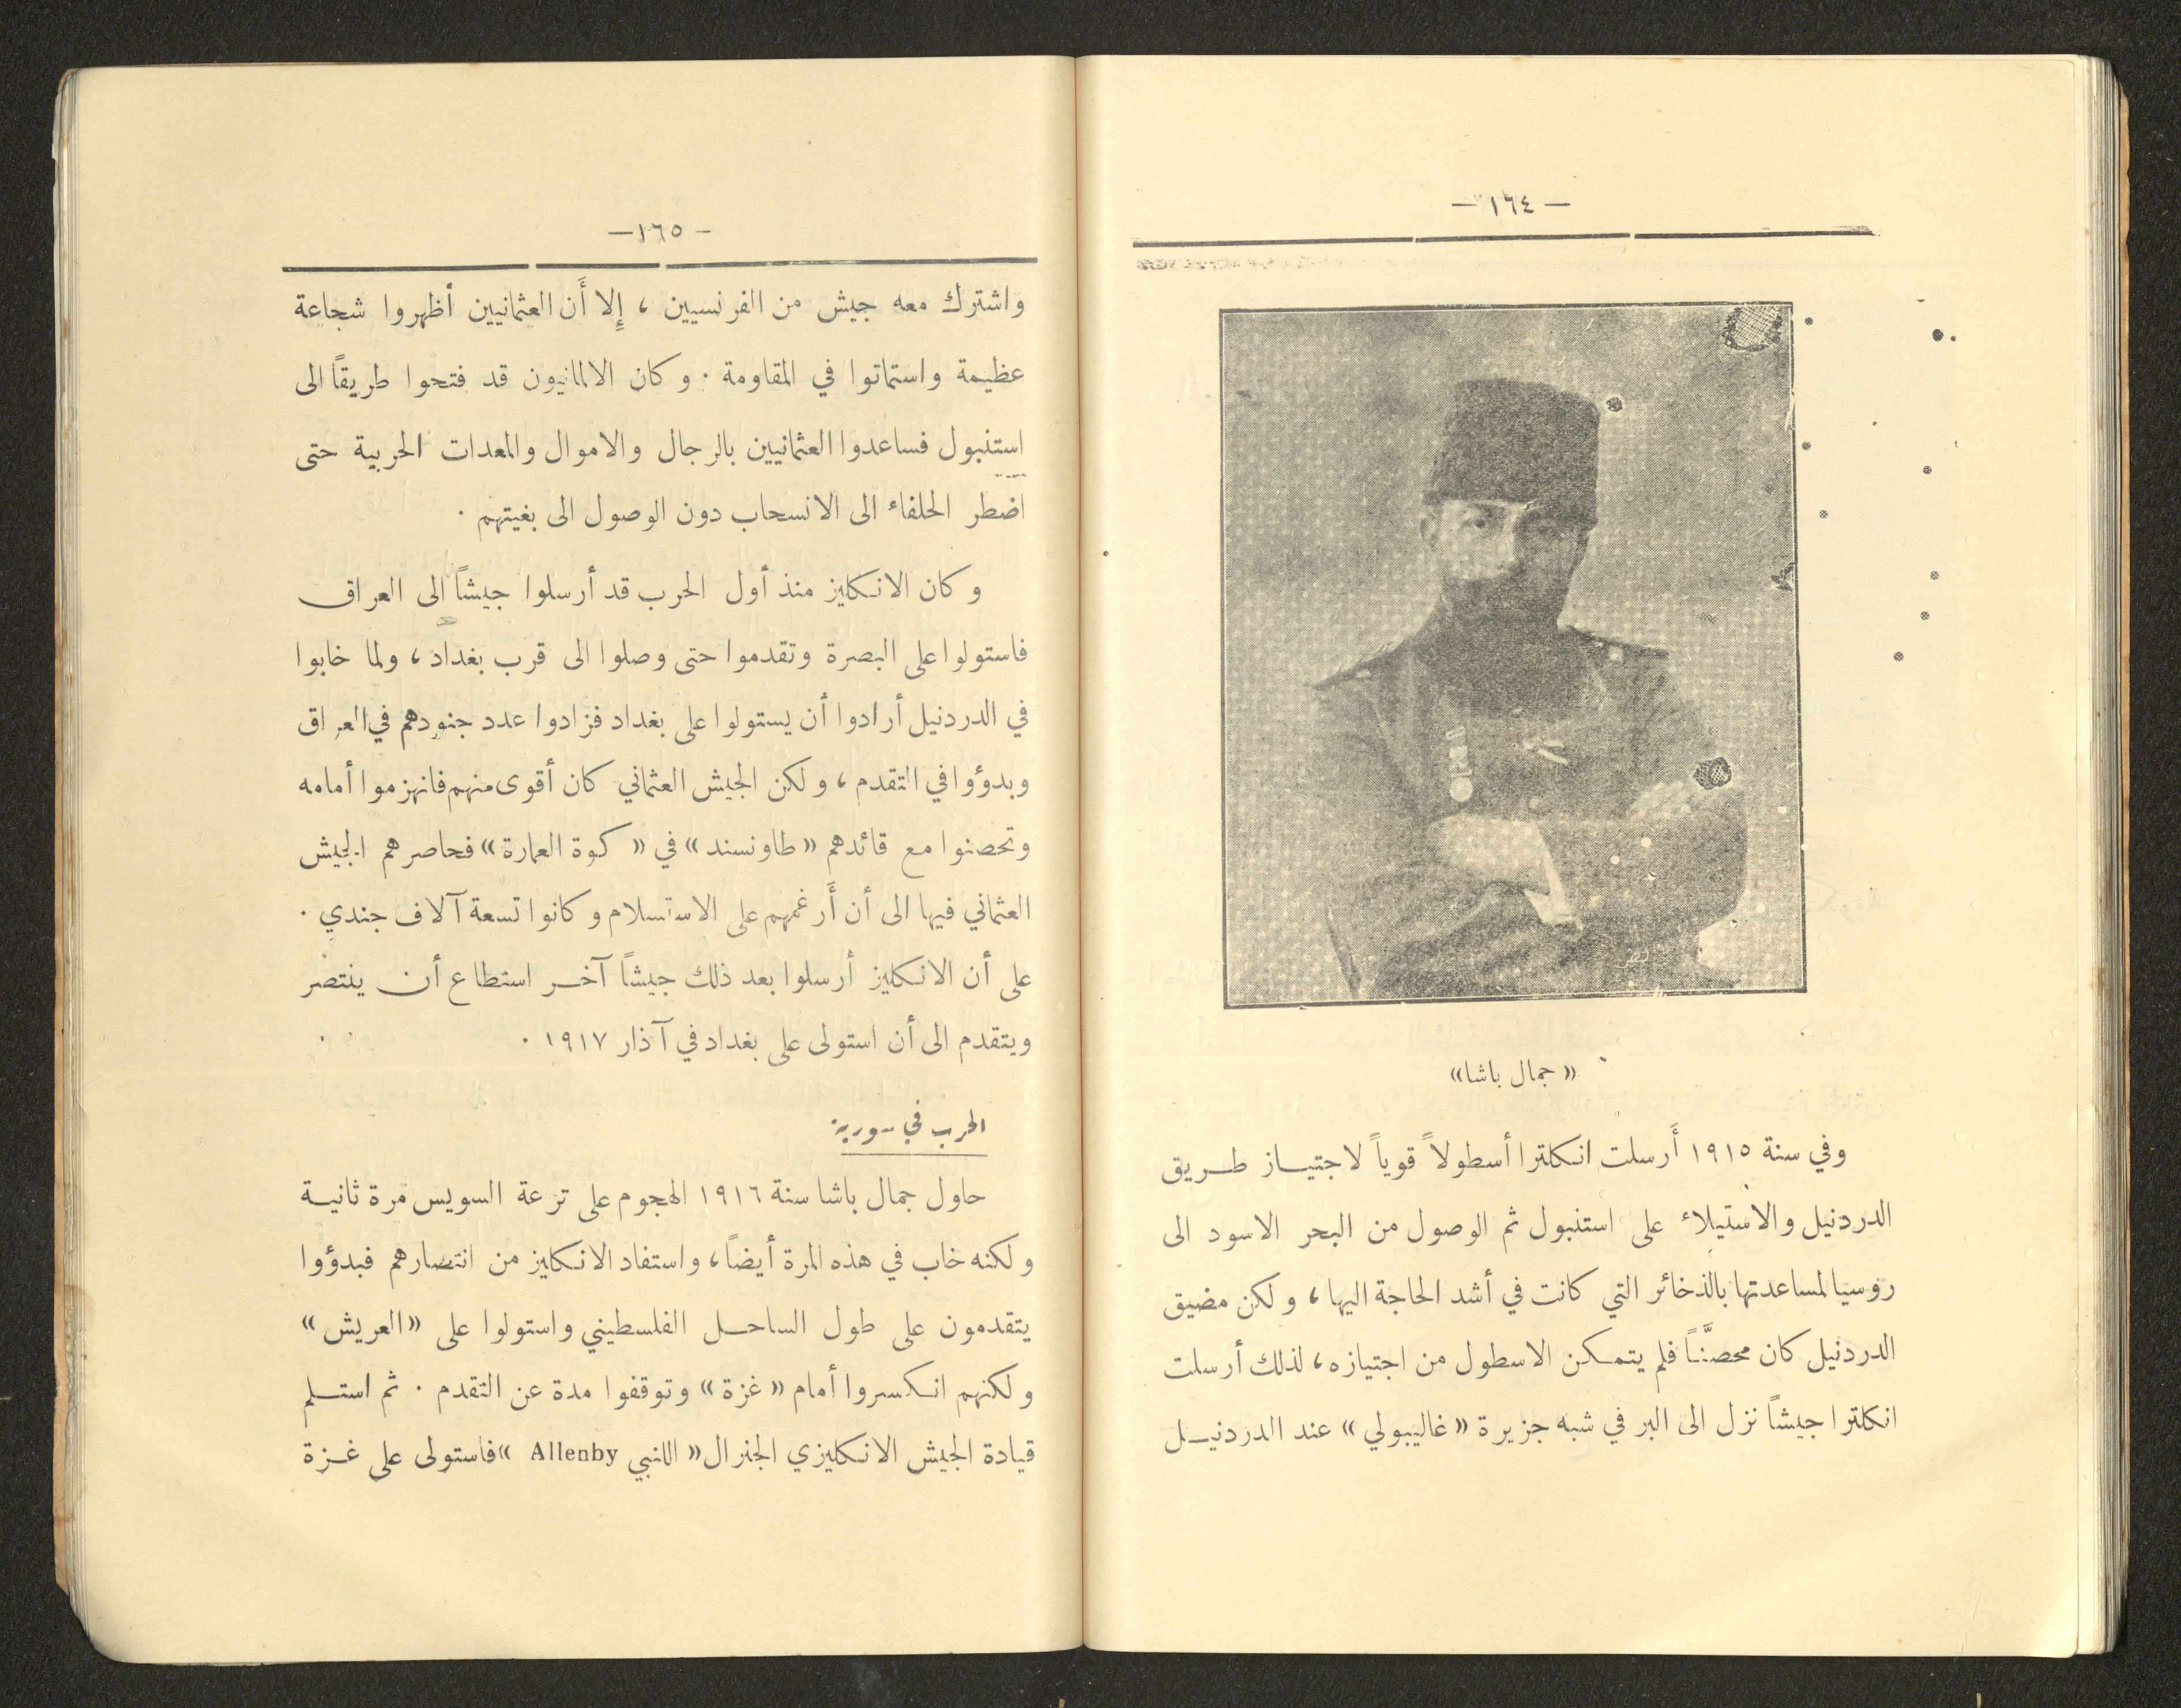 — ١٦٤ —
« جمال باشا»
وفي سنة ١٩١٥ أَرسلت انكلترا أسطولاً قوياً لاجتيــاز طـريق
الدردنيل والاستيلاء على استنبول ثم الوصول من البحر الاسود الى
روسيا لمساعدتها بالذخائر التي كانت في أشد الحاجة اليها ، ولكن مضيق
الدردنيل كان محصَّناً فلم يتمـكن الاسطول من اجتيازه ، لذلك أرسلت
انكلترا جيشاً نزل الى البر في شبه جزيرة « غاليبولي » عند الدردنيـل
— ١٦٥ —
واشترك معه جيش من الفرنسيين ، إِلا أَن العثمانيين أظهروا شجاعة
عظيمة واستماتوا في المقاومة . وكان الالمانيون قد فتحوا طريقاً الى
استنبول فساعدوا العثمانيين بالرجال والاموال والمعدات الحربية حتى
اضطر الحلفاء الى الانسحاب دون الوصول الى بغيتهم .
وكان الانـكليز منذ أول الحرب قد أرسلوا جيشاً الى العراق
فاستولوا على البصرة وتقدموا حتى وصلوا الى قرب بغداد ، ولما خابوا
في الدردنيل أرادوا أن يستولوا على بغداد فزادوا عدد جنودهم في العراق
وبدؤوا في التقدم ، ولكن الجيش العثماني كان أقوى منهم فانهزموا أمامه
وتحصنوا مع قائدهم « طاونسند » في « كوة العمارة » فحاصرهم الجيش
العثماني فيها الى أن أَرغمهم على الاستسلام وكانوا تسعة آلاف جندي .
على أن الانـكليز أرسلوا بعد ذلك جيشاً آخـر استطاع أن ينتصر
ويتقدم الى أن استولى على بغداد في آذار ١٩١٧ .
الحرب في سورية
حاول جمال باشا سنة ١٩١٦ الهجوم على ترعة السويس مرة ثانيـة
ولكنه خاب في هذه المرة أيضاً ، واستفاد الانـكليز من انتصارهم فبدؤوا
يتقدمون على طول الساحـل الفلسطيني واستولوا على « العريش »
ولكنهم انـكسروا أمام « غزة » وتوقفوا مدة عن التقدم . ثم استـلم
قيادة الجيش الانـكليزي الجنرال « اللنبي Allenby » فاستولى على غـزة